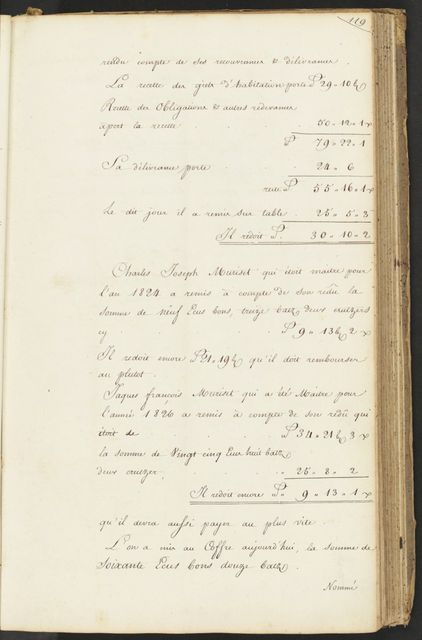 119
rendu compte de ses recouvrances & délivrances.
La recette des giets d'habitation porte P 29 " 10 b
Recette des Obligations & autres redevances
à part la recette . . . 50 " 12 " 1 x
P 79 " 22 " 1
Sa délivrance porte . . . 24 " 6
reste P 55 " 16 " 1 x
Le dit jour il a remis sur table . 25 " 5 " 3
Il redoit P. 30 " 10 " 2
Charles Joseph Muriset qui étoit maitre pour
l'an 1824 a remis à compte de son redû la
somme de neuf Ecus bons, treize batz deux cruitzers
cy . . . P 9 " 13 b 2 x
Il redoit encore P 21 " 19 b qu'il doit rembourser
au plutot.
Jaques françois Muriset qui a été Maitre pour
l'année 1826 a remis à compte de son redû qui
étoit de . . . P 34 " 21 b 3 x
la somme de Vingt cinq Ecus huit batz
deux cruitzer . . . 25 " 8 " 2
Il redoit encore P. 9 " 13 " 1 x
qu'il devra aussi payer au plus vite.
L'on a mis au Coffre aujourd'hui, la somme de
Soixante Ecus bons douze batz.
Nommé